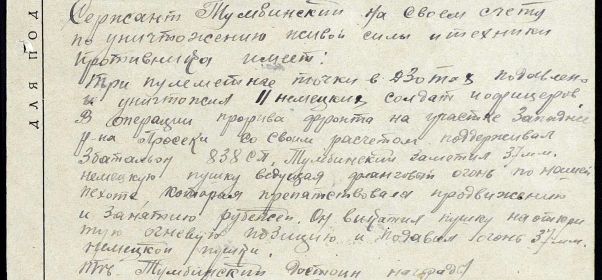 Сержант Тумбинский на своем счету
по уничтожению живой силы и техники
противника имеет:
Три пулеметные точки в ДЗотах подавлено
и уничтожил 11 немецких солдат и офицеров
В операции прорыва фронта на участке Западней
р-на Просеки со своим расчетом поддерживал
3батальон 838 СП. Тумбинский заметил 37мм.
немецкую пушку ведущая фланговый огонь по нашей
пехоте, которая препятствовала продвижению
и занятию рубежей. Он выкатил пушку на откры
тую огневую позицию и подавил огонь 37мм.
немецкой пушки.
Тов. Тумбинский достоин награды
ДЛЯ ПОД